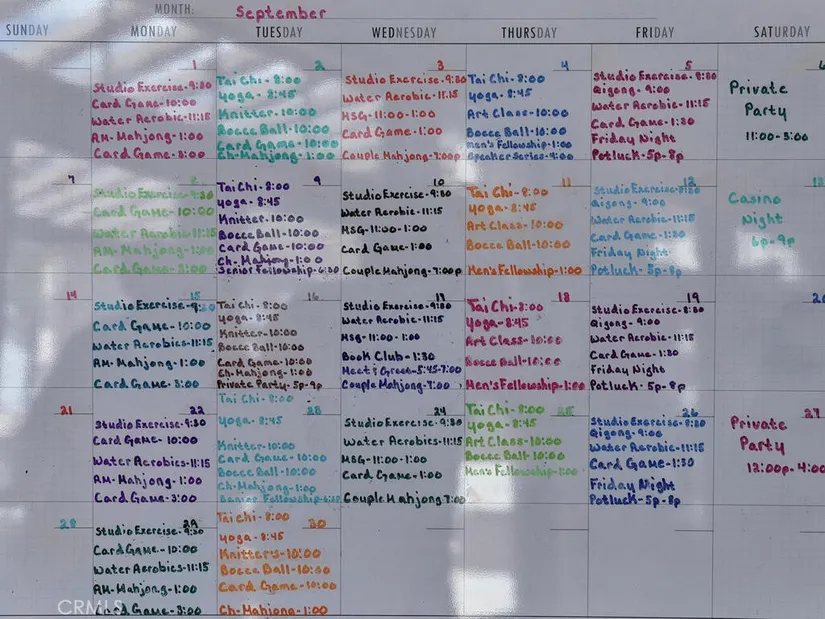 MONTH: September
SUNDAY MONDAY TUESDAY WEDNESDAY THURSDAY FRIDAY SATURDAY
1
Studio Exercise-9:30
Card Game-10:00
Water Aerobic-11:15
AM-Mahjong-1:00
Card Game-3:00
2
Tai Chi-8:00
Yoga-8:45
Knitter-10:00
Bocce Ball-10:00
Card Game-10:00
Ch-Mahjong-1:00
3
Studio Exercise-9:30
Water Aerobic-11:15
HSG-11:00-1:00
Card Game-1:00
Couple Mahjong-7:00p
4
Tai Chi-8:00
Yoga-8:45
Art Class-10:00
Bocce Ball-10:00
Men's Fellowship-1:00
Speaker Series-
5
Studio Exercise-8:30
Qigong-9:00
Water Aerobic-11:15
Card Game-1:30
Friday Night
Potluck-5p-8p
6
Private
Party
11:00-3:00
7
8
Studio Exercise-9:30
Card Game-10:00
Water Aerobic-11:15
AM-Mahjong-1:00
Card Game-3:00
9
Tai Chi-8:00
Yoga-8:45
Knitter-10:00
Bocce Ball-10:00
Card Game-10:00
Ch-Mahjong-1:00
Senior Fellowship-6:30
10
Studio Exercise-9:30
Water Aerobic-11:15
HSG-11:00-1:00
Card Game-1:00
Couple Mahjong-7:00p
11
Tai Chi-8:00
Yoga-8:45
Art Class-10:00
Bocce Ball-10:00
Men's Fellowship-1:00
12
Studio Exercise-8:30
Qigong-9:00
Water Aerobic-11:15
Card Game-1:30
Friday Night
Potluck-5p-8p
13
Casino
Night
6p-9p
14
15
Studio Exercise-9:30
Card Game-10:00
Water Aerobics-11:15
AM-Mahjong-1:00
Card Game-3:00
16
Tai Chi-8:00
Yoga-8:45
Knitter-10:00
Bocce Ball-10:00
Card Game-10:00
Ch-Mahjong-1:00
Private Party-5p-9p
17
Studio Exercise-9:30
Water Aerobic-11:15
HSG-11:00-1:00
Book Club-1:30
Meet & Greet-5:45-7:00
Couple Mahjong-7:00
18
Tai Chi-8:00
Yoga-8:45
Art Class-10:00
Bocce Ball-10:00
Men's Fellowship-1:00
19
Studio Exercise-8:30
Qigong-9:00
Water Aerobic-11:15
Card Game-1:30
Friday Night
Potluck-5p-8p
20
21
22
Studio Exercise-9:30
Card Game-10:00
Water Aerobics-11:15
AM-Mahjong-1:00
Card Game-3:00
23
Tai Chi-8:00
Yoga-8:45
Knitter-10:00
Card Game-10:00
Bocce Ball-10:00
Ch-Mahjong-1:00
Senior Fellowship-6:30
24
Studio Exercise-9:30
Water Aerobics-11:15
HSG-11:00-1:00
Card Game-1:00
Couple Mahjong 7:00
25
Tai Chi-8:00
Yoga-8:45
Art Class-10:00
Bocce Ball-10:00
Men's Fellowship-1:00
26
Studio Exercise-8:30
Qigong-9:00
Water Aerobic-11:15
Card Game-1:30
Friday Night
Potluck-5p-8p
27
Private
Party
12:00p-4:00
28
29
Studio Exercise-9:30
Card Game-10:00
Water Aerobics-11:15
AM-Mahjong-1:00
Card Game-3:00
30
Tai Chi-8:00
Yoga-8:45
Knitter's-10:00
Bocce Ball-10:00
Card Game-10:00
Ch-Mahjong-1:00
CRMLS